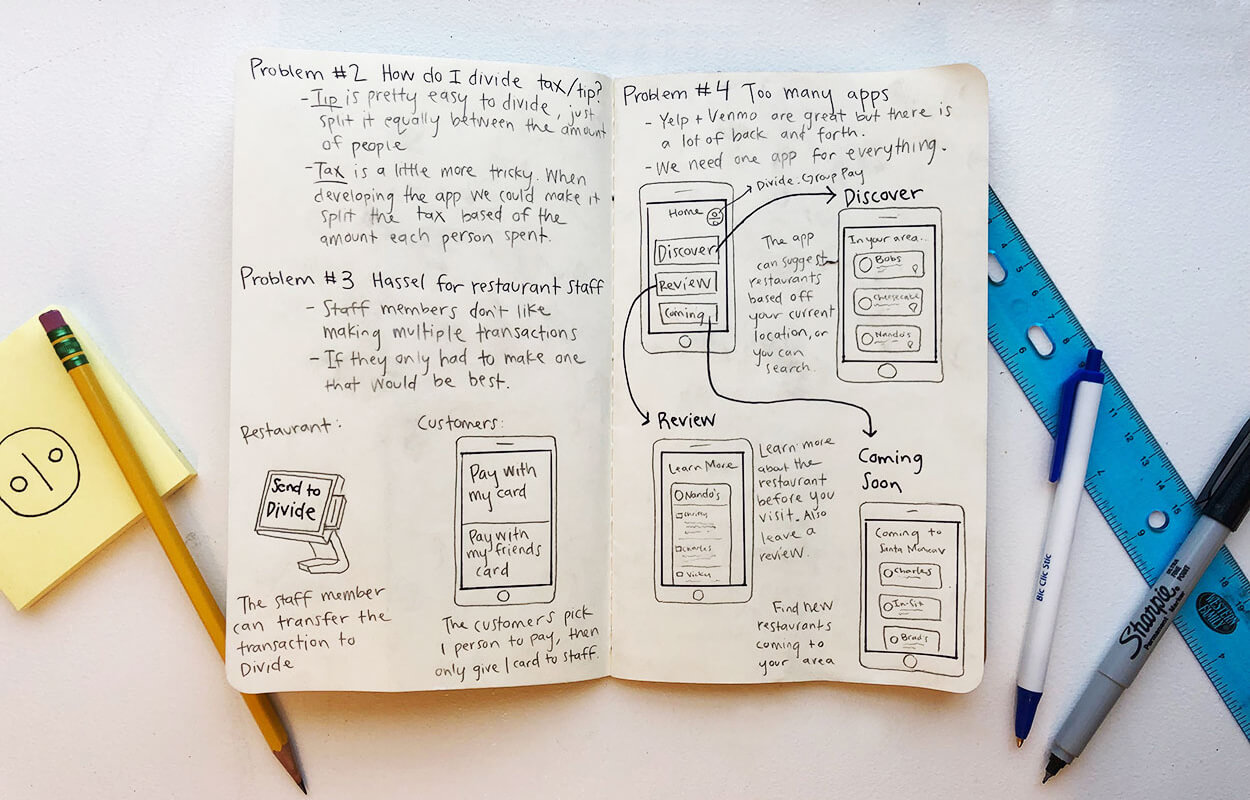 Problem #2 How do I divide tax/tip?
- Tip is pretty easy to divide, just
split it equally between the amount
of people
- Tax is a little more tricky. When
developing the app we could make it
split the tax based of the
amount each person spent.
Problem #3 Hassel for restaurant staff
- Staff members don't like
making multiple transactions
- If they only had to make one
that would be best.
Restaurant:
Send to
Divide
The staff member
can transfer the
transaction to
Divide
Customers:
Pay with
my card
Pay with
my friends
card
The customers pick
1 person to pay, then
only give 1 card to staff.
Problem #4 Too many apps
- Yelp + Venmo are great but there is
a lot of back and forth.
- We need one app for everything.
Divide. Group Pay
Home
Discover
Review
Coming
The app
can suggest
restaurants
based off
your current
location, or
you can
search.
Discover
In your area...
Bobs
Cheesecake
Nando's
Review
Learn More
Nando's
Charles
Vicky
Learn more
about the
restaurant
before you
visit. Also
leave a
review.
Coming
Soon
Coming to
Santa Monica
Charles
Brad's
Find new
restaurants
coming to
your area
Bic Clic Stic
Sharpie